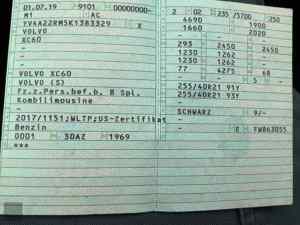 01.07.19 9101 00000000-
M1 AC
2 02 235 /3700 250
YV4A22RM5K1383329 X
4690 1900
VOLVO
1660 2020
XC60
- -
-
293 2450 2450
-
1230 1262 -
-
1230 1262 -
77 4275 68
VOLVO XC60
- - 5 -
VOLVO (S)
255/40R21 91Y
Fz.z.Pers.bef.b. 8 Spl.
255/40R21 93Y
Kombilimousine
-
-
SCHWARZ 9/-
2017/1151;WLTP;US-Zertifikat
-
Benzin
0001 1969
***